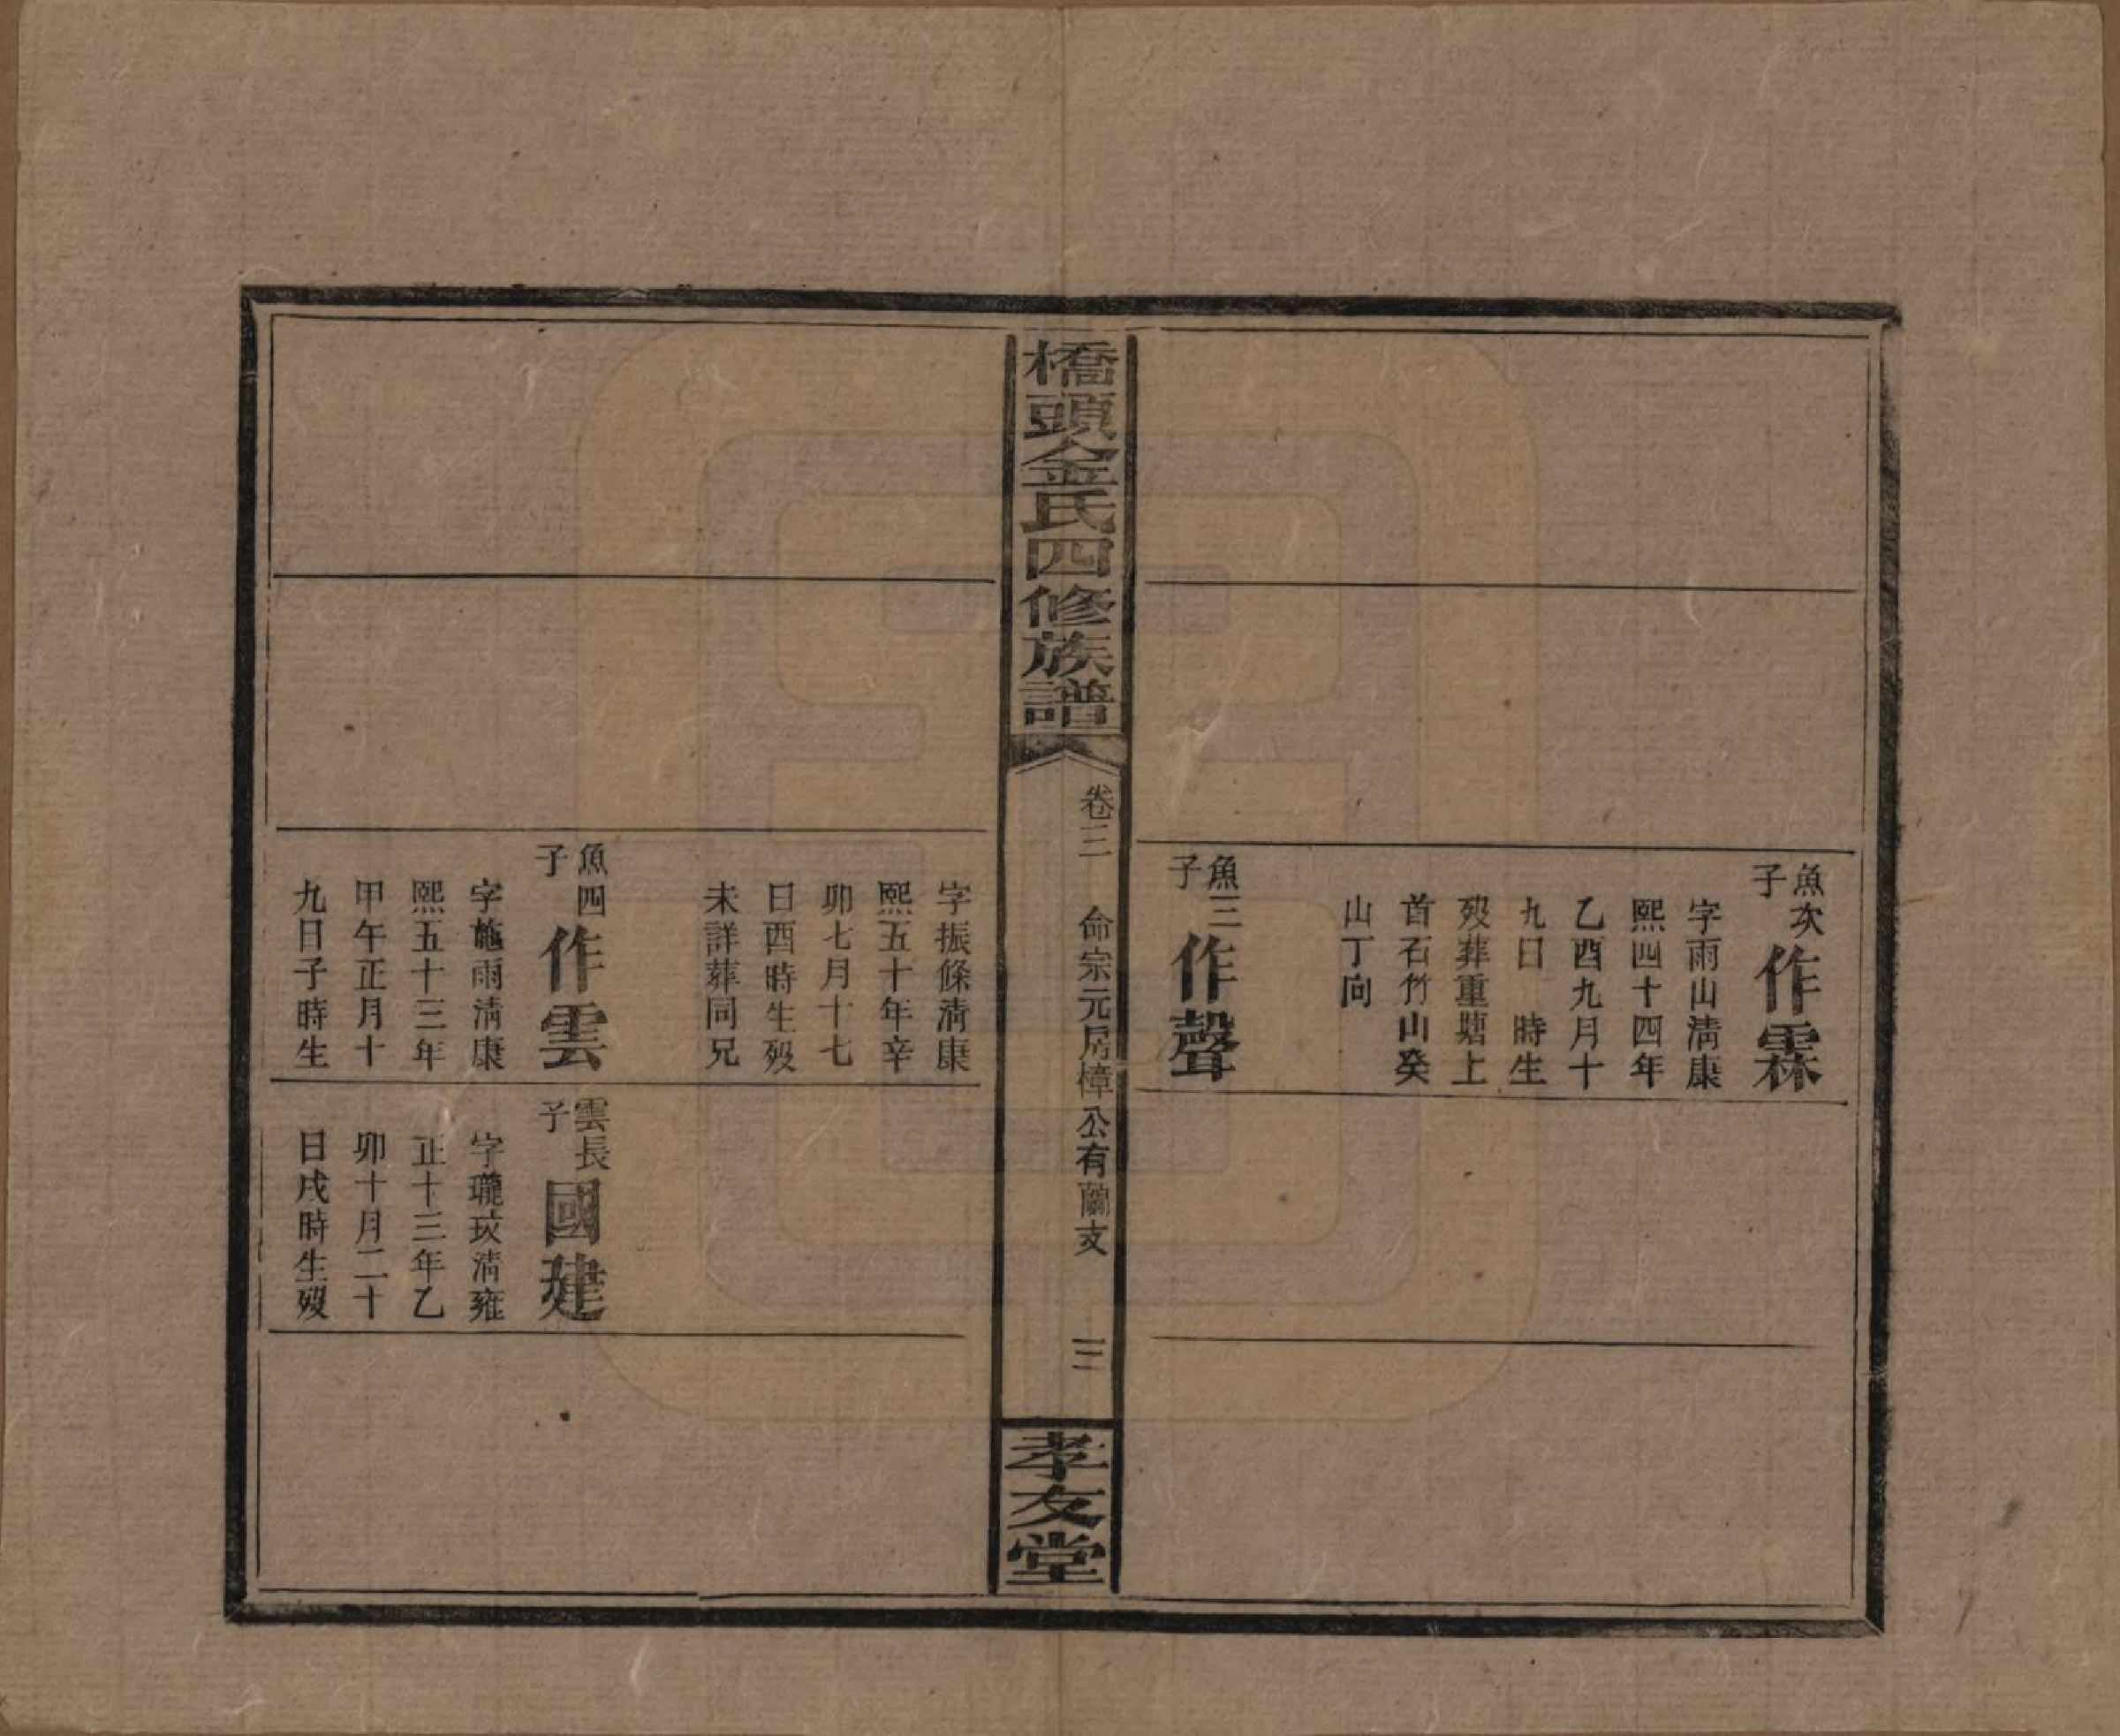 魚次子
作霖
字雨山清康
熙四十四年
乙酉九月十
九日　時生
歿葬重塘上
首石竹山癸
山丁向
魚三子
作聲
橋頭金氏四修族譜
卷三　命宗元房樟公有蘭支　三
孝友堂
字振條清康
熙五十年辛
卯七月十七
日酉時生歿
未詳葬同兄
魚四子
作雲
字施雨清康
熙五十三年
甲午正月十
九日子時生
雲長子
國建
字瓏玟清雍
正十三年乙
卯十月二十
日戌時生歿